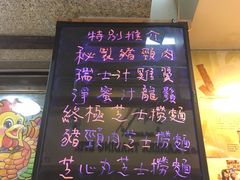 特別推介
秘製豬頸肉
瑞士汁雞翼
淨蜜汁龍鬚
終極芝士撈麵
豬頸肉芝士撈麵
芝心丸芝士撈麵